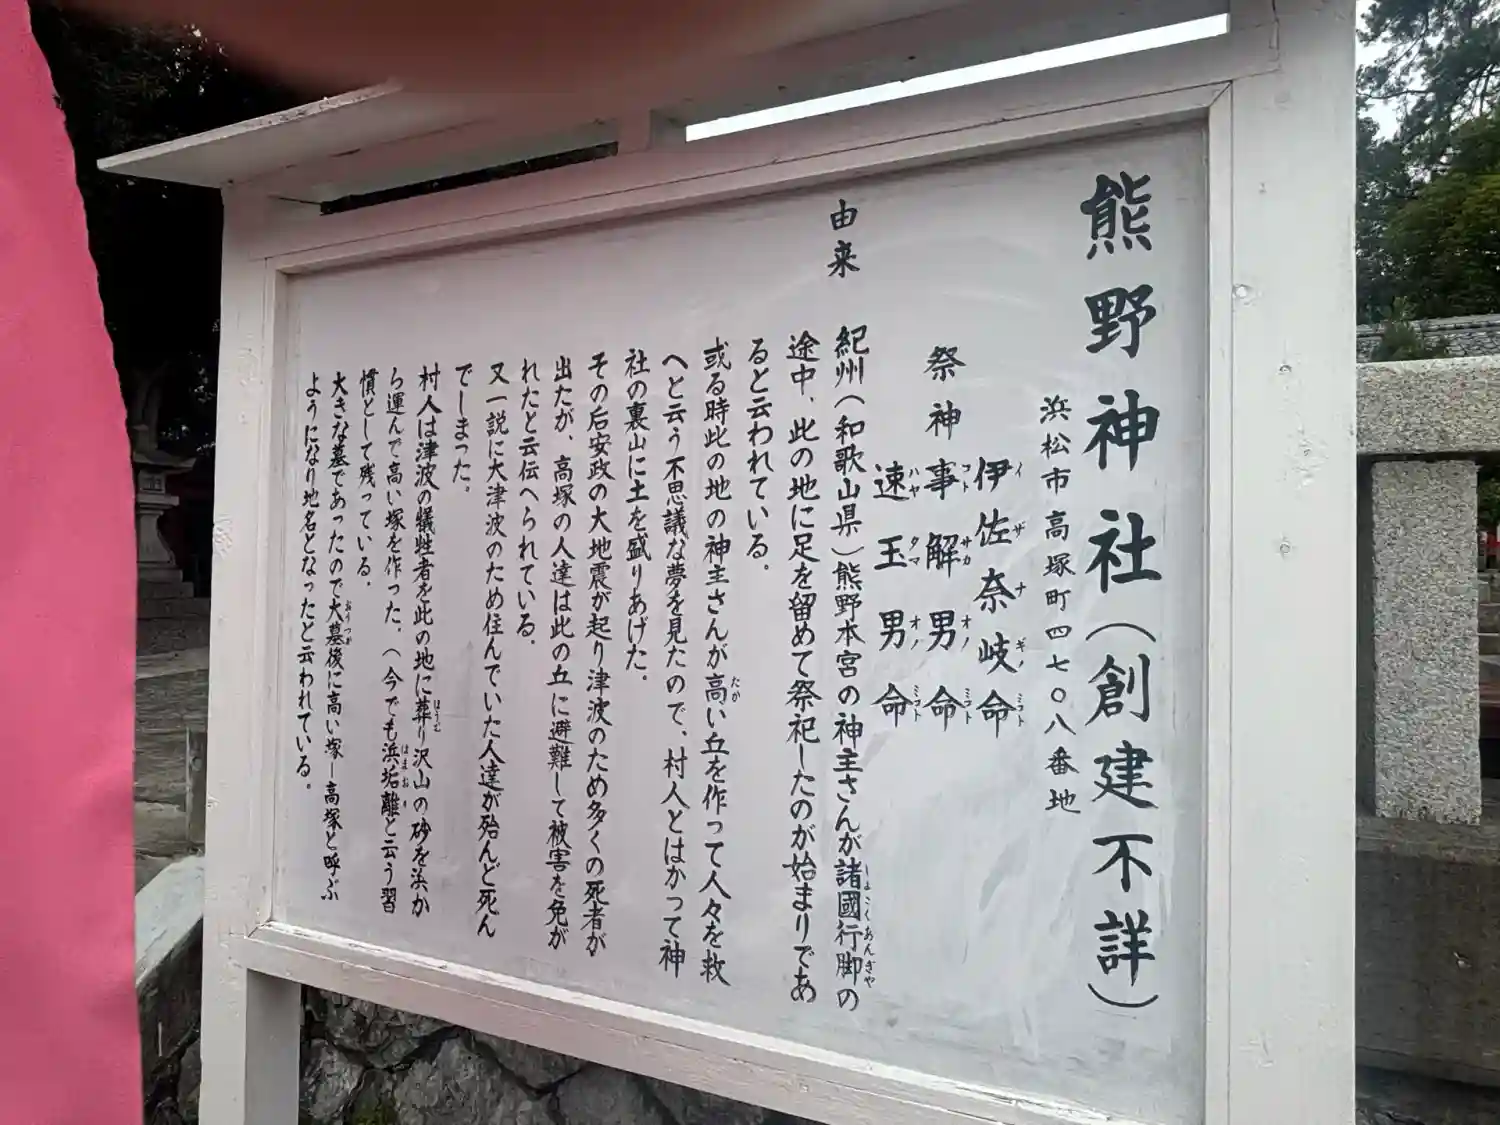 熊野神社(創建不詳)
浜松市高塚町四七〇八番地
伊佐奈岐命
イザナギノミコト
祭神事解男命
コトサカオノミコト
速玉男命
ハヤタマオノミコト
由来
紀州(和歌山県)熊野本宮の神主さんが諸國行脚の
しょこくあんぎや
途中、此の地に足を留めて祭祀したのが始まりであ
ると云われている。
或る時此の地の神主さんが高い丘を作って人々を救
たか
へと云う不思議な夢を見たので、村人とはかって神
社の裏山に土を盛りあげた。
その后安政の大地震が起り津波のため多くの死者が
出たが、高塚の人達は此の丘に避難して被害を免が
れたと云伝へられている。
又一説に大津波のため住んでいた人達が殆んど死ん
でしまった。
村人は津波の犠牲者を此の地に葬り沢山の砂を浜か
ほうむ
ら運んで高い塚を作った。(今でも浜垢離と云う習
はまおり
慣として残っている。
大きな墓であったので大墓後に高い塚―高塚と呼ぶ
おうつか
ようになり地名となったと云われている。